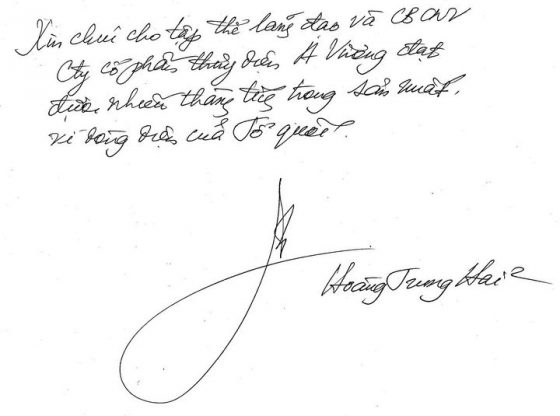 Xin chúc cho tập thể lãng đạo và CBCNV
Cty cổ phần thủy điện A Vương đạt
được nhiều thắng lợi trong sản xuất,
vì dòng điện của Tổ quốc.
Hoàng Trung Hải